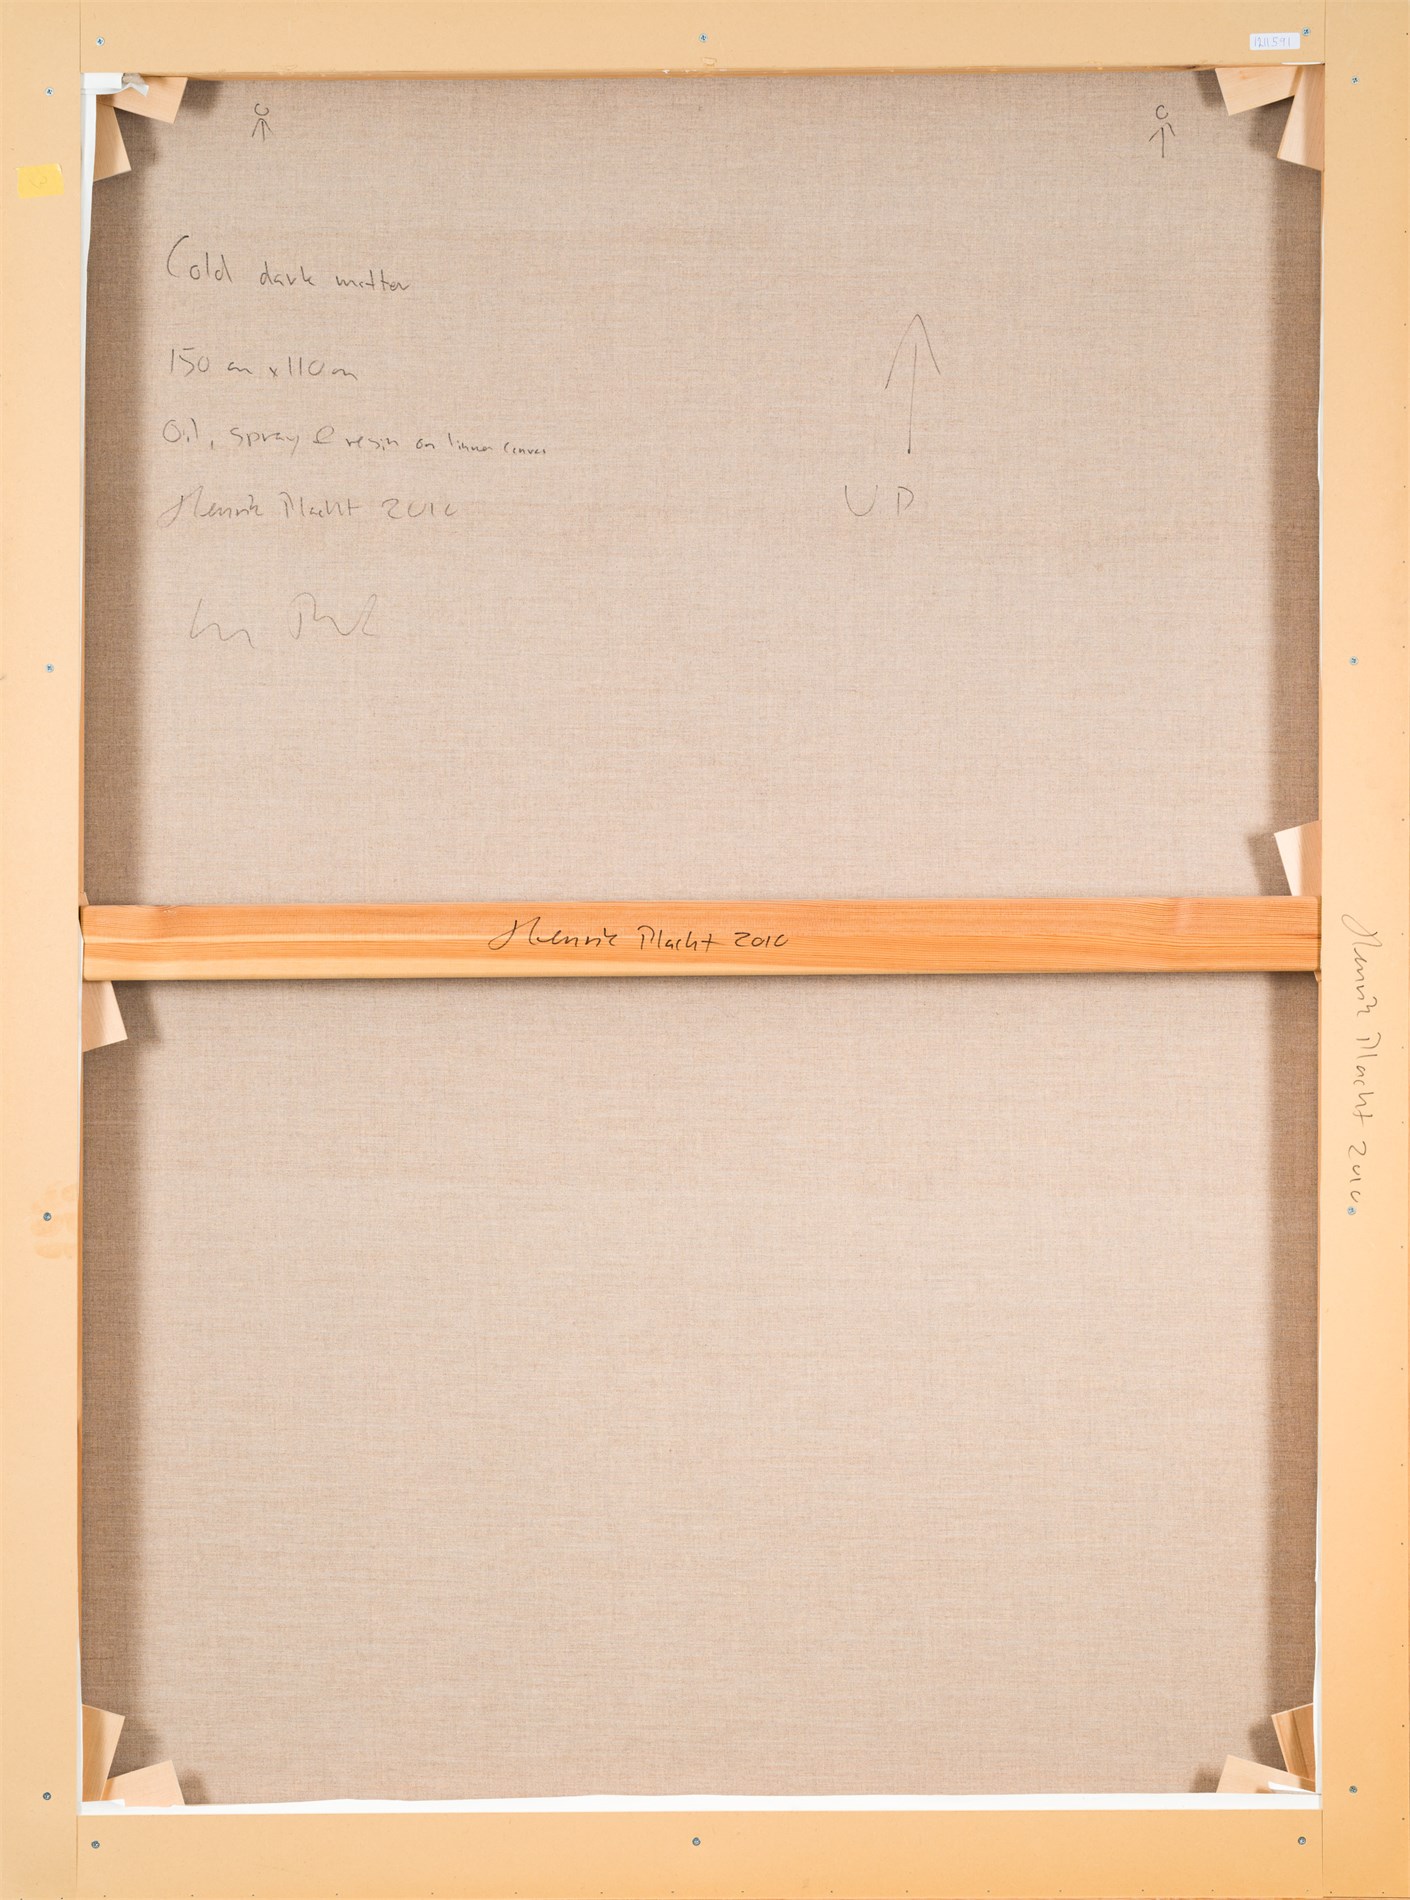 1211591
Cold dark matter
150 cm x 110 cm
Oil, spray & resin on linnen canvas
UP
Henrik Placht 2010
Henrik Placht 2010
Henrik Placht 2010